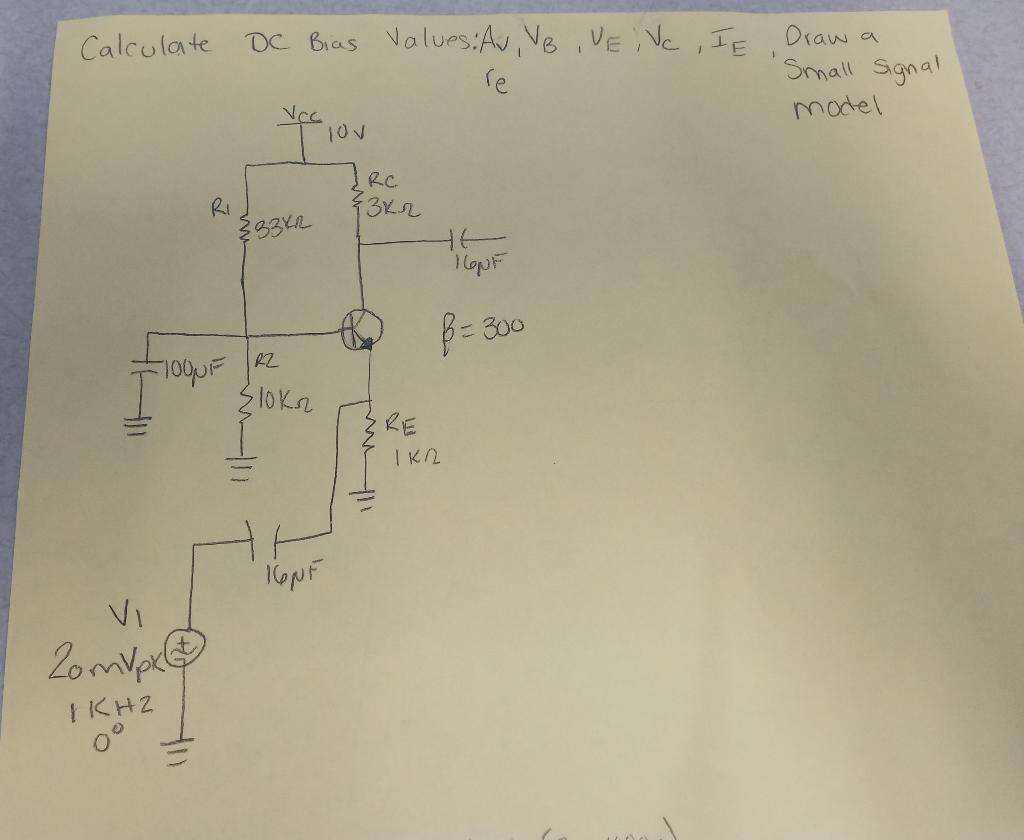 Calculate DC Bias Values: Av, VB, VE, VC, IE, Draw a
re Small Signal
model
VCC
10V
RC
R1
3KΩ
33KΩ
16μF
β = 300
100μF
R2
10KΩ
RE
1KΩ
16μF
V1
20mVpk
1KHZ
0°